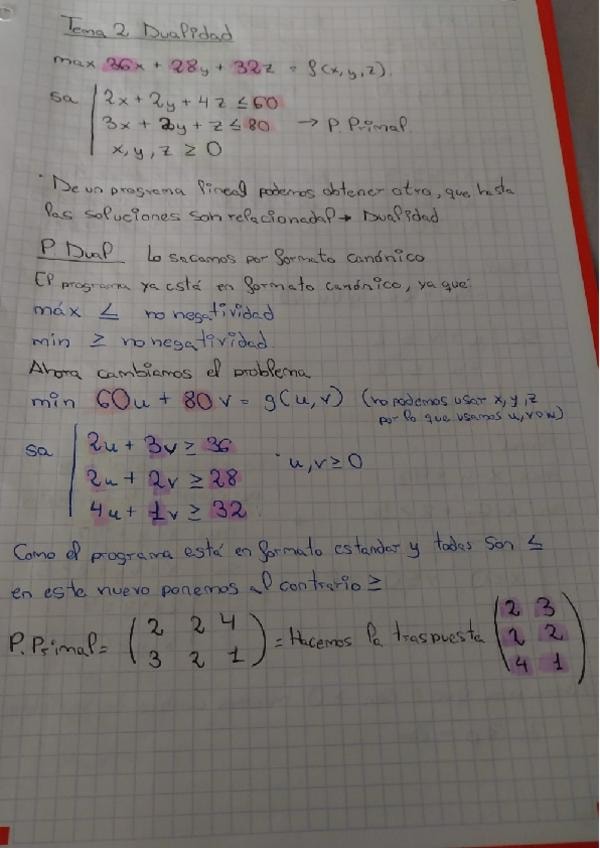 Tema 2 Dualidad
max 36x + 28y + 32z = f(x,y,z).
sa 2x + 2y + 4z ≤ 60
3x + 2y + z ≤ 80 → P. Primal
x, y, z ≥ 0
· De un programa lineal podemos obtener otro, que hasta
las soluciones son relacionadas → Dualidad
P Dual Lo sacamos por formato canónico
El programa ya está en formato canónico, ya que:
máx ≤ no negatividad
min ≥ no negatividad
Ahora cambiamos el problema
min 60u + 80v = g(u,v) (no podemos usar x, y, z
por lo que usamos u, v o w)
sa 2u + 3v ≥ 36
2u + 2v ≥ 28 · u, v ≥ 0
4u + 1v ≥ 32
Como el programa está en formato estandar y todas son ≤
en este nuevo ponemos al contrario ≥
P. Primal = (2 2 4
3 2 1) = Hacemos la traspuesta (2 3
2 2
4 1)